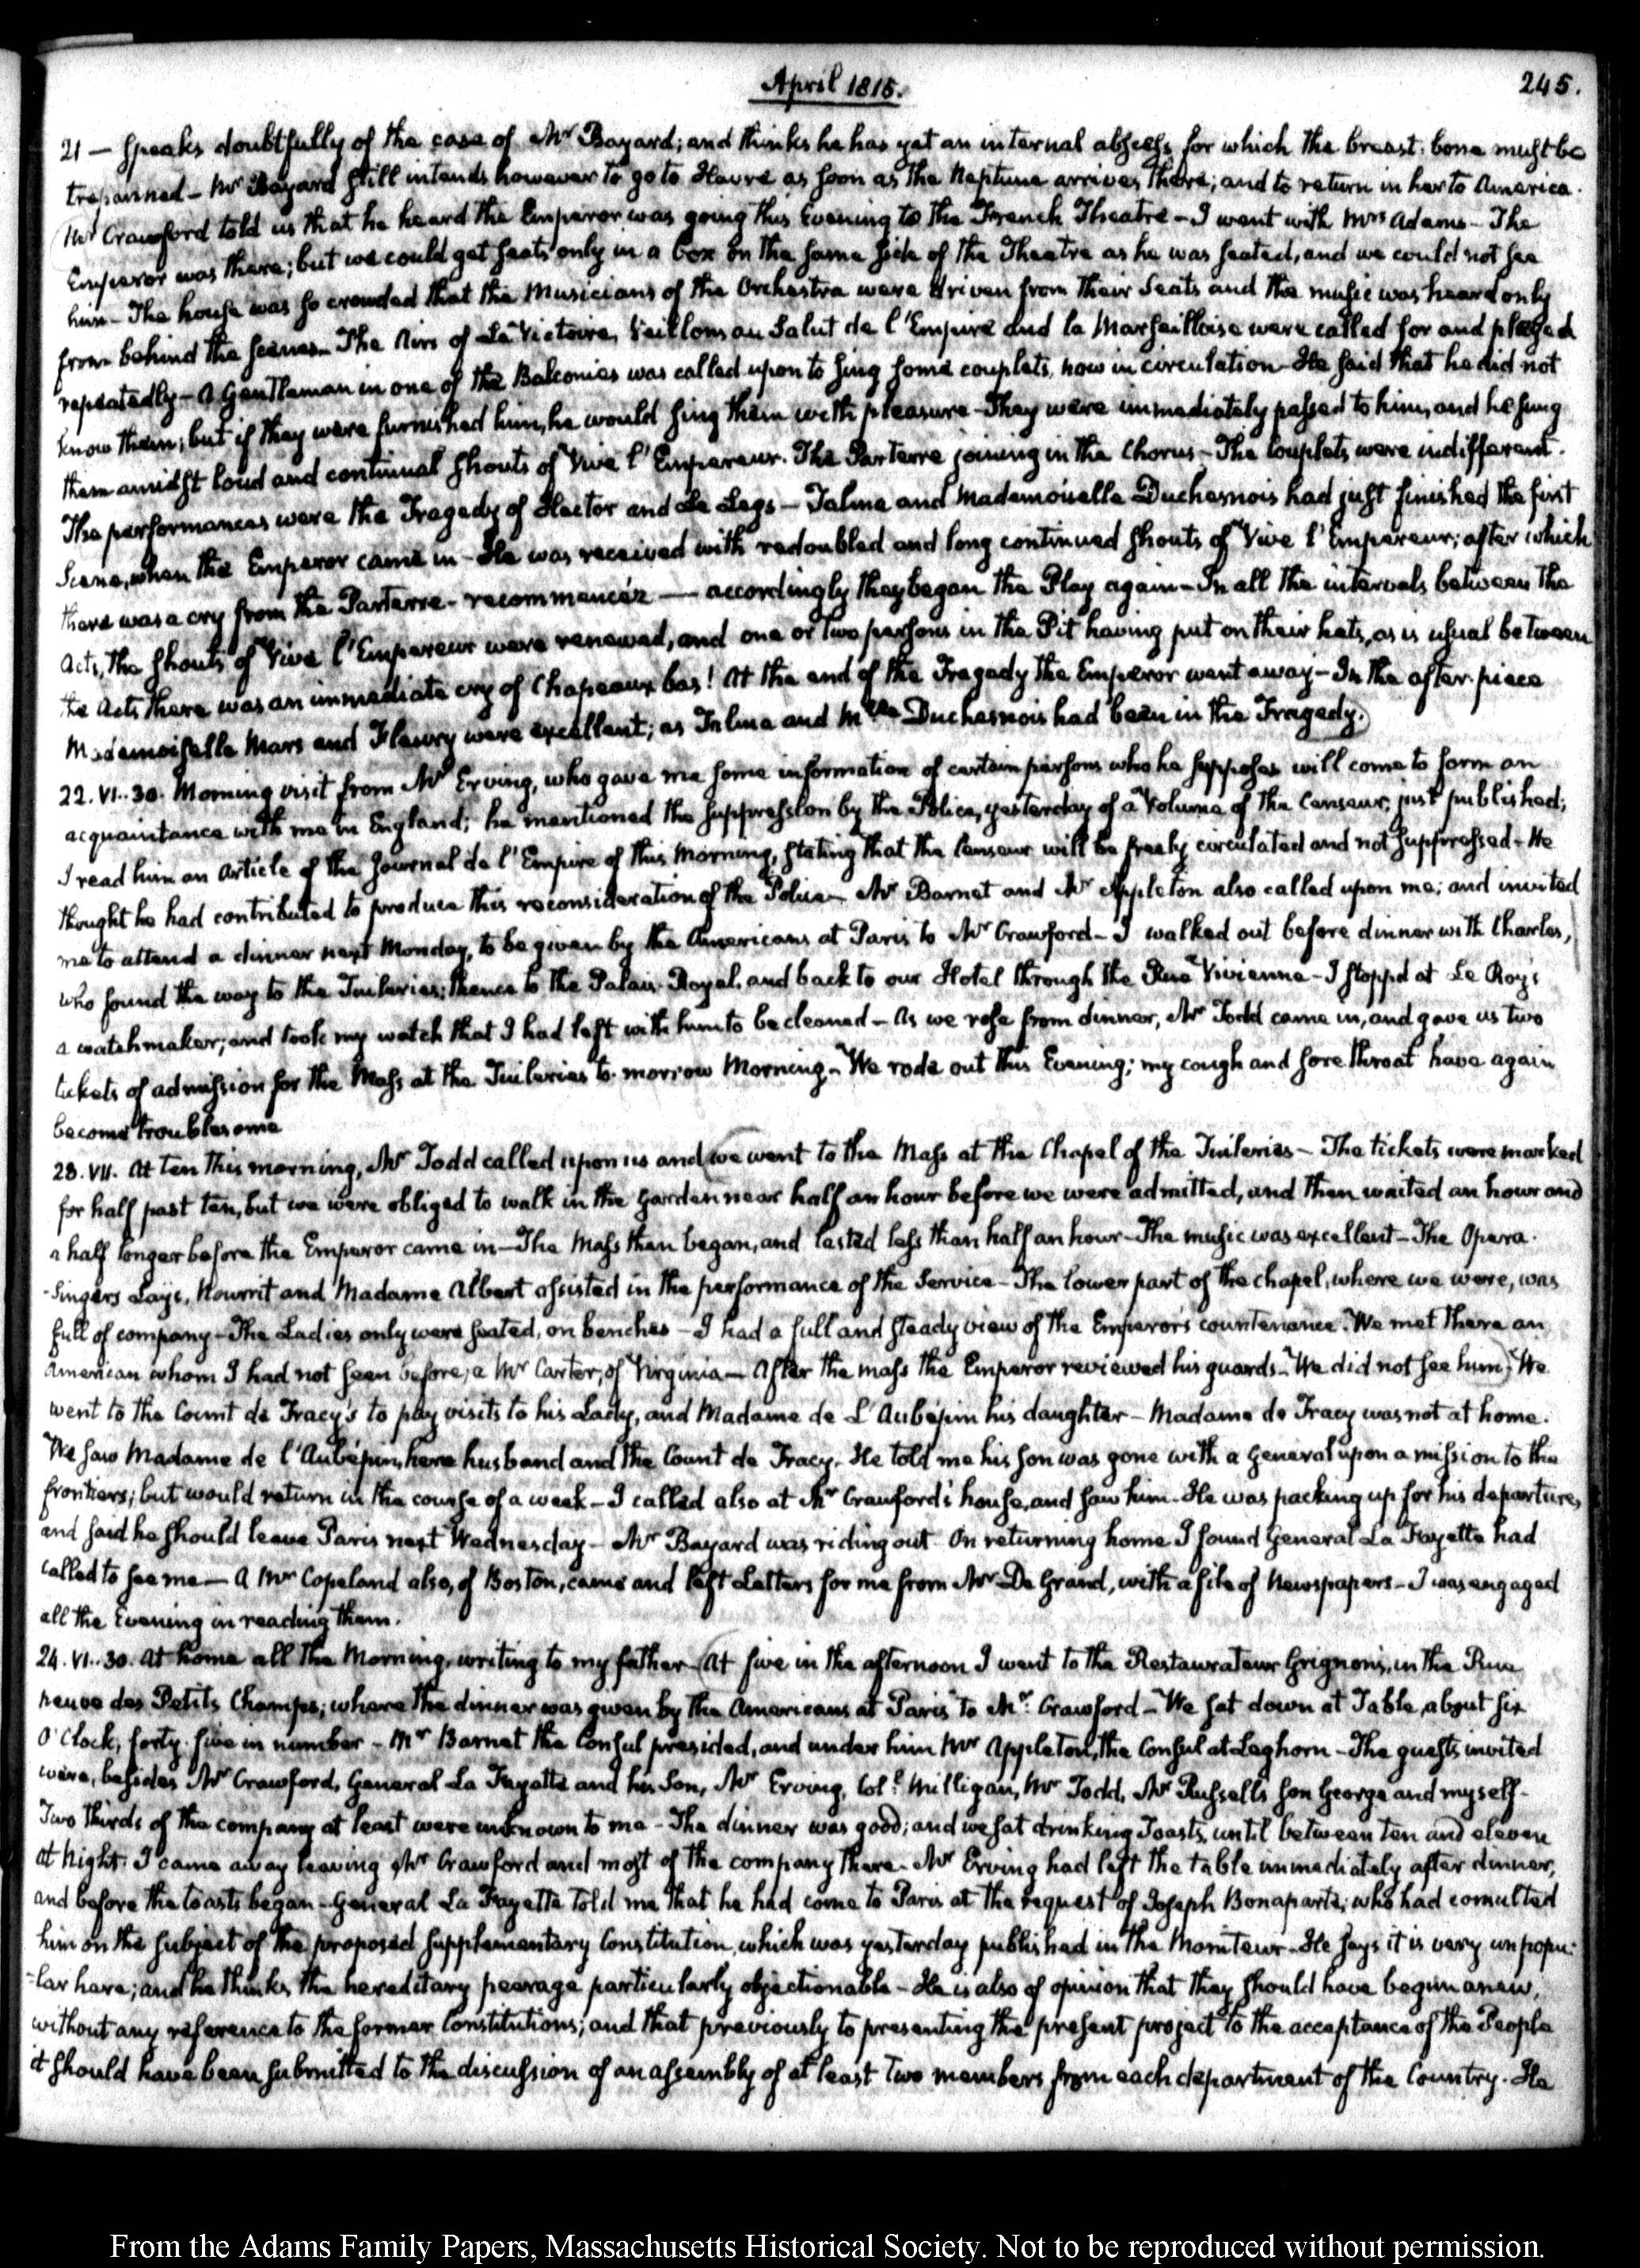 April 1815.
245.
21 — speaks doubtfully of the case of Mr Bayard; and thinks he has yet an internal abscess for which the breast-bone must be
trepanned — Mr Bayard still intends however to go to Havre as soon as the Neptune arrives there; and to return in her to America.
Mr Crawford told us that he heard the Emperor was going this Evening to the French Theatre — I went with Mrs Adams — The
Emperor was there; but we could get seats only in a box on the same side of the Theatre as he was seated, and we could not see
him — The house was so crowded that the Musicians of the Orchestra were driven from their Seats and the music was heard only
from behind the scenes — The Airs of La Victoire, Veillons au Salut de l'Empire and la Marseilloise were called for and played
repeatedly — A Gentleman in one of the Balconies was called upon to sing some couplets, now in circulation — He said that he did not
know them; but if they were furnished him, he would sing them with pleasure — They were immediately passed to him, and he sung
them amidst loud and continual shouts of Vive l'Empereur. The Parterre joining in the Chorus — The Couplets were indifferent.
The performances were the Tragedy of Hector and Le Legs — Talma and Mademoiselle Duchesnois had just finished the first
Scene, when the Emperor came in — He was received with redoubled and long continued shouts of Vive l'Empereur; after which
there was a cry from the Parterre - recommencéz — accordingly they began the Play again — In all the intervals between the
Acts, the shouts of Vive l'Empereur were renewed, and one or two persons in the Pit having put on their hats, as is usual between
the Acts there was an immediate cry of Chapeaux bas! At the end of the Tragedy the Emperor went away — In the after-piece
Mademoiselle Mars and Fleury were excellent; as Talma and Mlle Duchesnois had been in the Tragedy.
22. VI..30. Morning visit from Mr Erving, who gave me some information of certain persons who he supposes will come to form an
acquaintance with me in England; he mentioned the suppression by the Police, yesterday of a Volume of the Censeur, just published;
I read him an Article of the Journal de l'Empire of this Morning, stating that the Censeur will be freely circulated and not suppressed — He
thought he had contributed to produce this reconsideration of the Police — Mr Barnet and Mr Appleton also called upon me; and invited
me to attend a dinner next Monday, to be given by the Americans at Paris to Mr Crawford — I walked out before dinner with Charles,
who found the way to the Tuileries; thence to the Palais-Royal, and back to our Hotel through the Rue Vivienne — I stopp'd at Le Roy's
a watchmaker; and took my watch that I had left with him to be cleaned — As we rose from dinner, Mr Todd came in, and gave us two
tickets of admission for the Mass at the Tuileries to-morrow Morning — We rode out this Evening; my cough and sore throat have again
become troublesome
23. VII. At ten this morning, Mr Todd called upon us and we went to the Mass at the Chapel of the Tuileries — The tickets were marked
for half past ten, but we were obliged to walk in the Garden near half an hour before we were admitted, and then waited an hour and
a half longer before the Emperor came in — The Mass then began, and lasted less than half an hour — The music was excellent — The Opera-
Singers Layz, Nourrit and Madame Albert assisted in the performance of the Service — The lower part of the chapel, where we were, was
full of company — The Ladies only were seated, on benches — I had a full and steady view of the Emperor's countenance. We met there an
American whom I had not seen before, a Mr Carter, of Virginia — After the mass the Emperor reviewed his guards — We did not see him; We
went to the Count de Tracy's to pay visits to his Lady, and Madame de L'Aubépin his daughter — Madame de Tracy was not at home.
We saw Madame de l'Aubépin, here husband and the Count de Tracy. He told me his son was gone with a General upon a mission to the
frontiers; but would return in the course of a week — I called also at Mr Crawford's house, and saw him. He was packing up for his departure,
and said he should leave Paris next Wednesday — Mr Bayard was riding out. On returning home I found General La Fayette had
called to see me — A Mr Copeland also, of Boston, came and left Letters for me from Mr De Grand, with a file of Newspapers — I was engaged
all the Evening in reading them.
24. VI..30. At home all the Morning, writing to my father. At five in the afternoon I went to the Restaurateur Grignon's, in the Rue
neuve des Petits Champs; where the dinner was given by the Americans at Paris to Mr. Crawford — We sat down at Table about six
O'Clock, forty-five in number — Mr Barnet the Consul presided, and under him Mr Appleton, the Consul at Leghorn — The guests invited
were, besides Mr Crawford, General La Fayette and his Son, Mr Erving, Coll Milligan, Mr Todd, Mr Russell's son George and myself —
Two thirds of the company at least were unknown to me — The dinner was good; and we sat drinking Toasts, until between ten and eleven
at Night. I came away leaving Mr Crawford and most of the company there. Mr Erving had left the table immediately after dinner,
and before the toasts began — General La Fayette told me that he had come to Paris at the request of Joseph Bonaparte; who had consulted
him on the subject of the proposed supplementary Constitution, which was yesterday published in the Moniteur — He says it is very unpopu-
-lar here; and he thinks the hereditary peerage particularly objectionable — He is also of opinion that they should have begun anew,
without any reference to the former Constitutions; and that previously to presenting the present project to the acceptance of the People
it should have been submitted to the discussion of an assembly of at least two members from each department of the Country. He
From the Adams Family Papers, Massachusetts Historical Society. Not to be reproduced without permission.